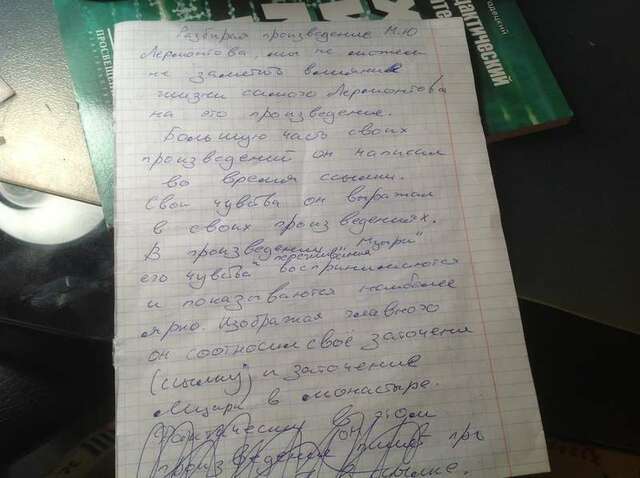 Разбирая произведение М.Ю
Лермонтова мы не можем
не заметить влияние
жизни самого Лермонтова
на это произведение.
Большую часть своих
произведений он написал
во время ссылки.
Свои чувства он выражал
в своих произведениях.
В произведении "Мцыри"
его чувства переживания воспринимаются
и показываются наиболее
ярко. Изображая главного
он соотносил своё заточения
(ссылку) и заточение
Мцыри в монастыре.
Фактически в этом
произведение он пишет при
ссылке.
ПРОСВЕЩЕНИЕ
дактический